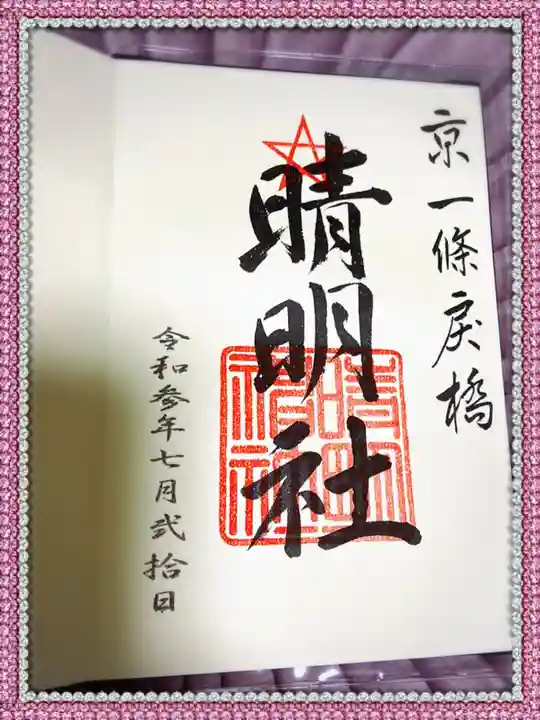 京一條戻橋
晴明社
令和参年七月弐拾日